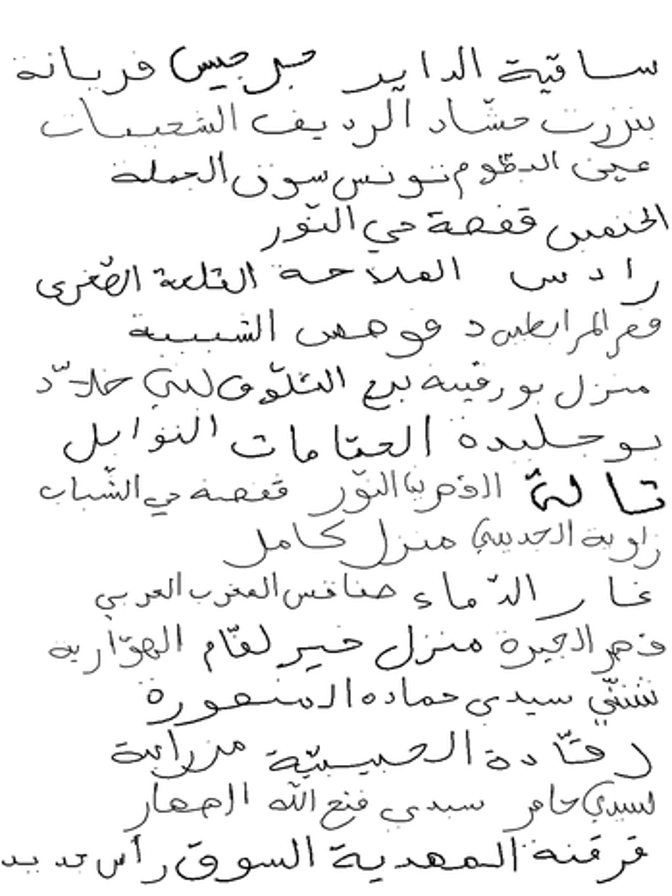 ساقية الداير جرجيس فريانة
بنزرت حشاد الرديف الشعبيات
عين الدقوم تونس سوق الجملة
قفصة حي النّور
رادس الملاحة القلعة الصّغرى
قصر المرابطين د فوحص الشبيبة
منزل بورقيبة برج التلّوق لبني خلاّد
بوجليدة العتامات النوايل
تالة قفصة حي الشّباب
زاوية الجديدي منزل كامل
غار الدّماء صفاقس المغرب العربي
قصر الجيرة منزل خير لفّام الهوّارية
شنّني سيدي حماده المنصورة
رقّادة الحبيبيّة مزراية
سيدي عامر سيدي فتح الله
قرقنة المهدية السوق رأس جديد